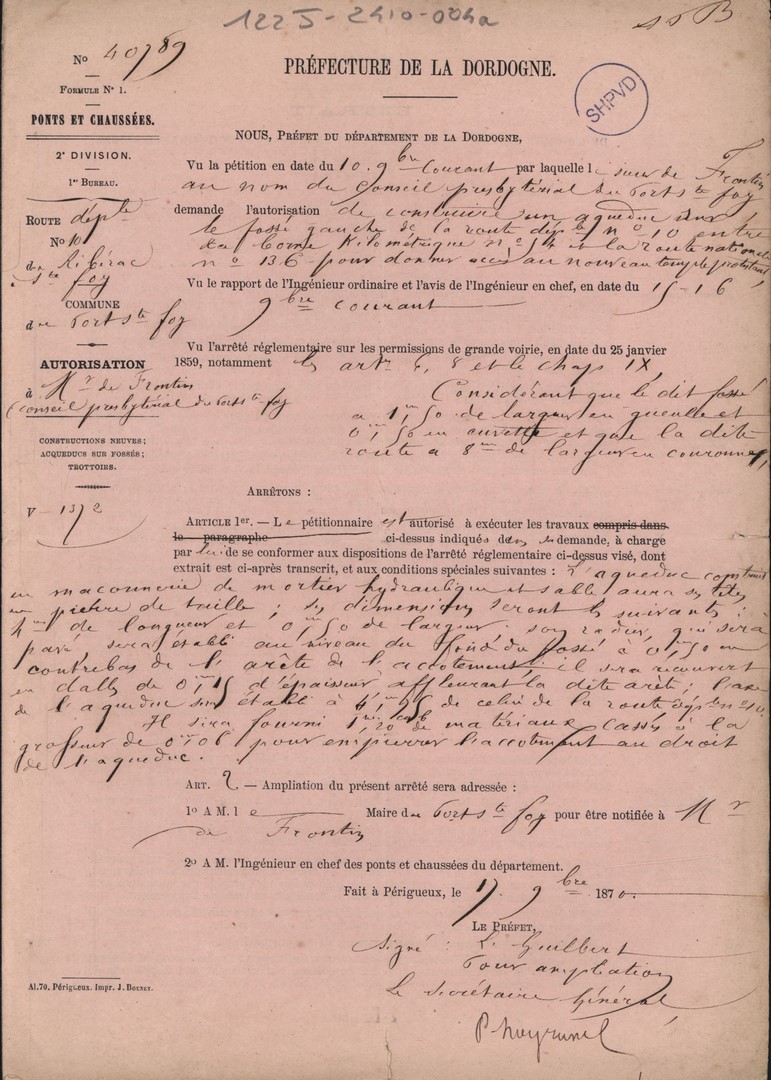 122 J - 2410 - 004a
No 40789
PRÉFECTURE DE LA DORDOGNE.
SHPVD
FORMULE No 1.
PONTS ET CHAUSSÉES.
2e DIVISION.
1er BUREAU.
ROUTE déple
No 10
de Ribérac
à Ste foy
COMMUNE
du Port Ste foy
AUTORISATION
à Mr de Frontin
(Conseil presbytérial du Port Ste foy
CONSTRUCTIONS NEUVES;
ACQUEDUCS SUR FOSSÉS;
TROTTOIRS.
V - 1372
NOUS, PRÉFET DU DÉPARTEMENT DE LA DORDOGNE,
Vu la pétition en date du 10. 9bre Courant par laquelle le sieur de Frontin
au nom du Conseil presbytérial du Port Ste foy
demande l'autorisation de construire un aqueduc sur
le fossé gauche de la route déple no 10 entre
la borne Kilométrique no 54 et la route nationale
no 136 pour donner accès au nouveau temple protestant
Vu le rapport de l'Ingénieur ordinaire et l'avis de l'Ingénieur en chef, en date du 15-16
9bre courant
Vu l'arrêté réglementaire sur les permissions de grande voirie, en date du 25 janvier
1859, notamment les arts 6, 8 et le chap IX,
Considérant que le dit fossé
a 1m,50 de largeur en gueule et
0m,50 en cuvette et que la dite
route a 8m de largeur en couronne,
ARRÊTONS :
ARTICLE 1er. — Le pétitionnaire est autorisé à exécuter les travaux compris dans
le paragraphe ci-dessus indiqués dans sa demande, à charge
par lui de se conformer aux dispositions de l'arrêté réglementaire ci-dessus visé, dont
extrait est ci-après transcrit, et aux conditions spéciales suivantes : L'aqueduc construit
en maçonnerie de mortier hydraulique et sable aura ses têtes
en pierre de taille ; ses dimensions seront les suivantes :
4m de longueur et 0m,50 de largeur. son radier, qui sera
pavé, sera établi au niveau du fond du fossé à 0m,50 en
contrebas de l'arête de l'accotement : il sera recouvert
en dalles de 0m,15 d'épaisseur affleurant la dite arête ; l'axe
de l'aqueduc sera établi à 4m,75 de celui de la route déple no 10.
Il sera fourni 1m,20 cube de matériaux cassés à la
grosseur de 0m06 pour empierrer l'accotement au droit
de l'aqueduc.
ART. 2. — Ampliation du présent arrêté sera adressée :
1o A M. le Maire du Port Ste foy pour être notifiée à Mr
de Frontin
2o A M. l'Ingénieur en chef des ponts et chaussées du département.
Fait à Périgueux, le 17. 9bre 1870.
LE PRÉFET,
Signé : L. Guilbert
Pour ampliation
Le Secrétaire Général
Al.70. Périgueux. Impr. J. BOUNET.